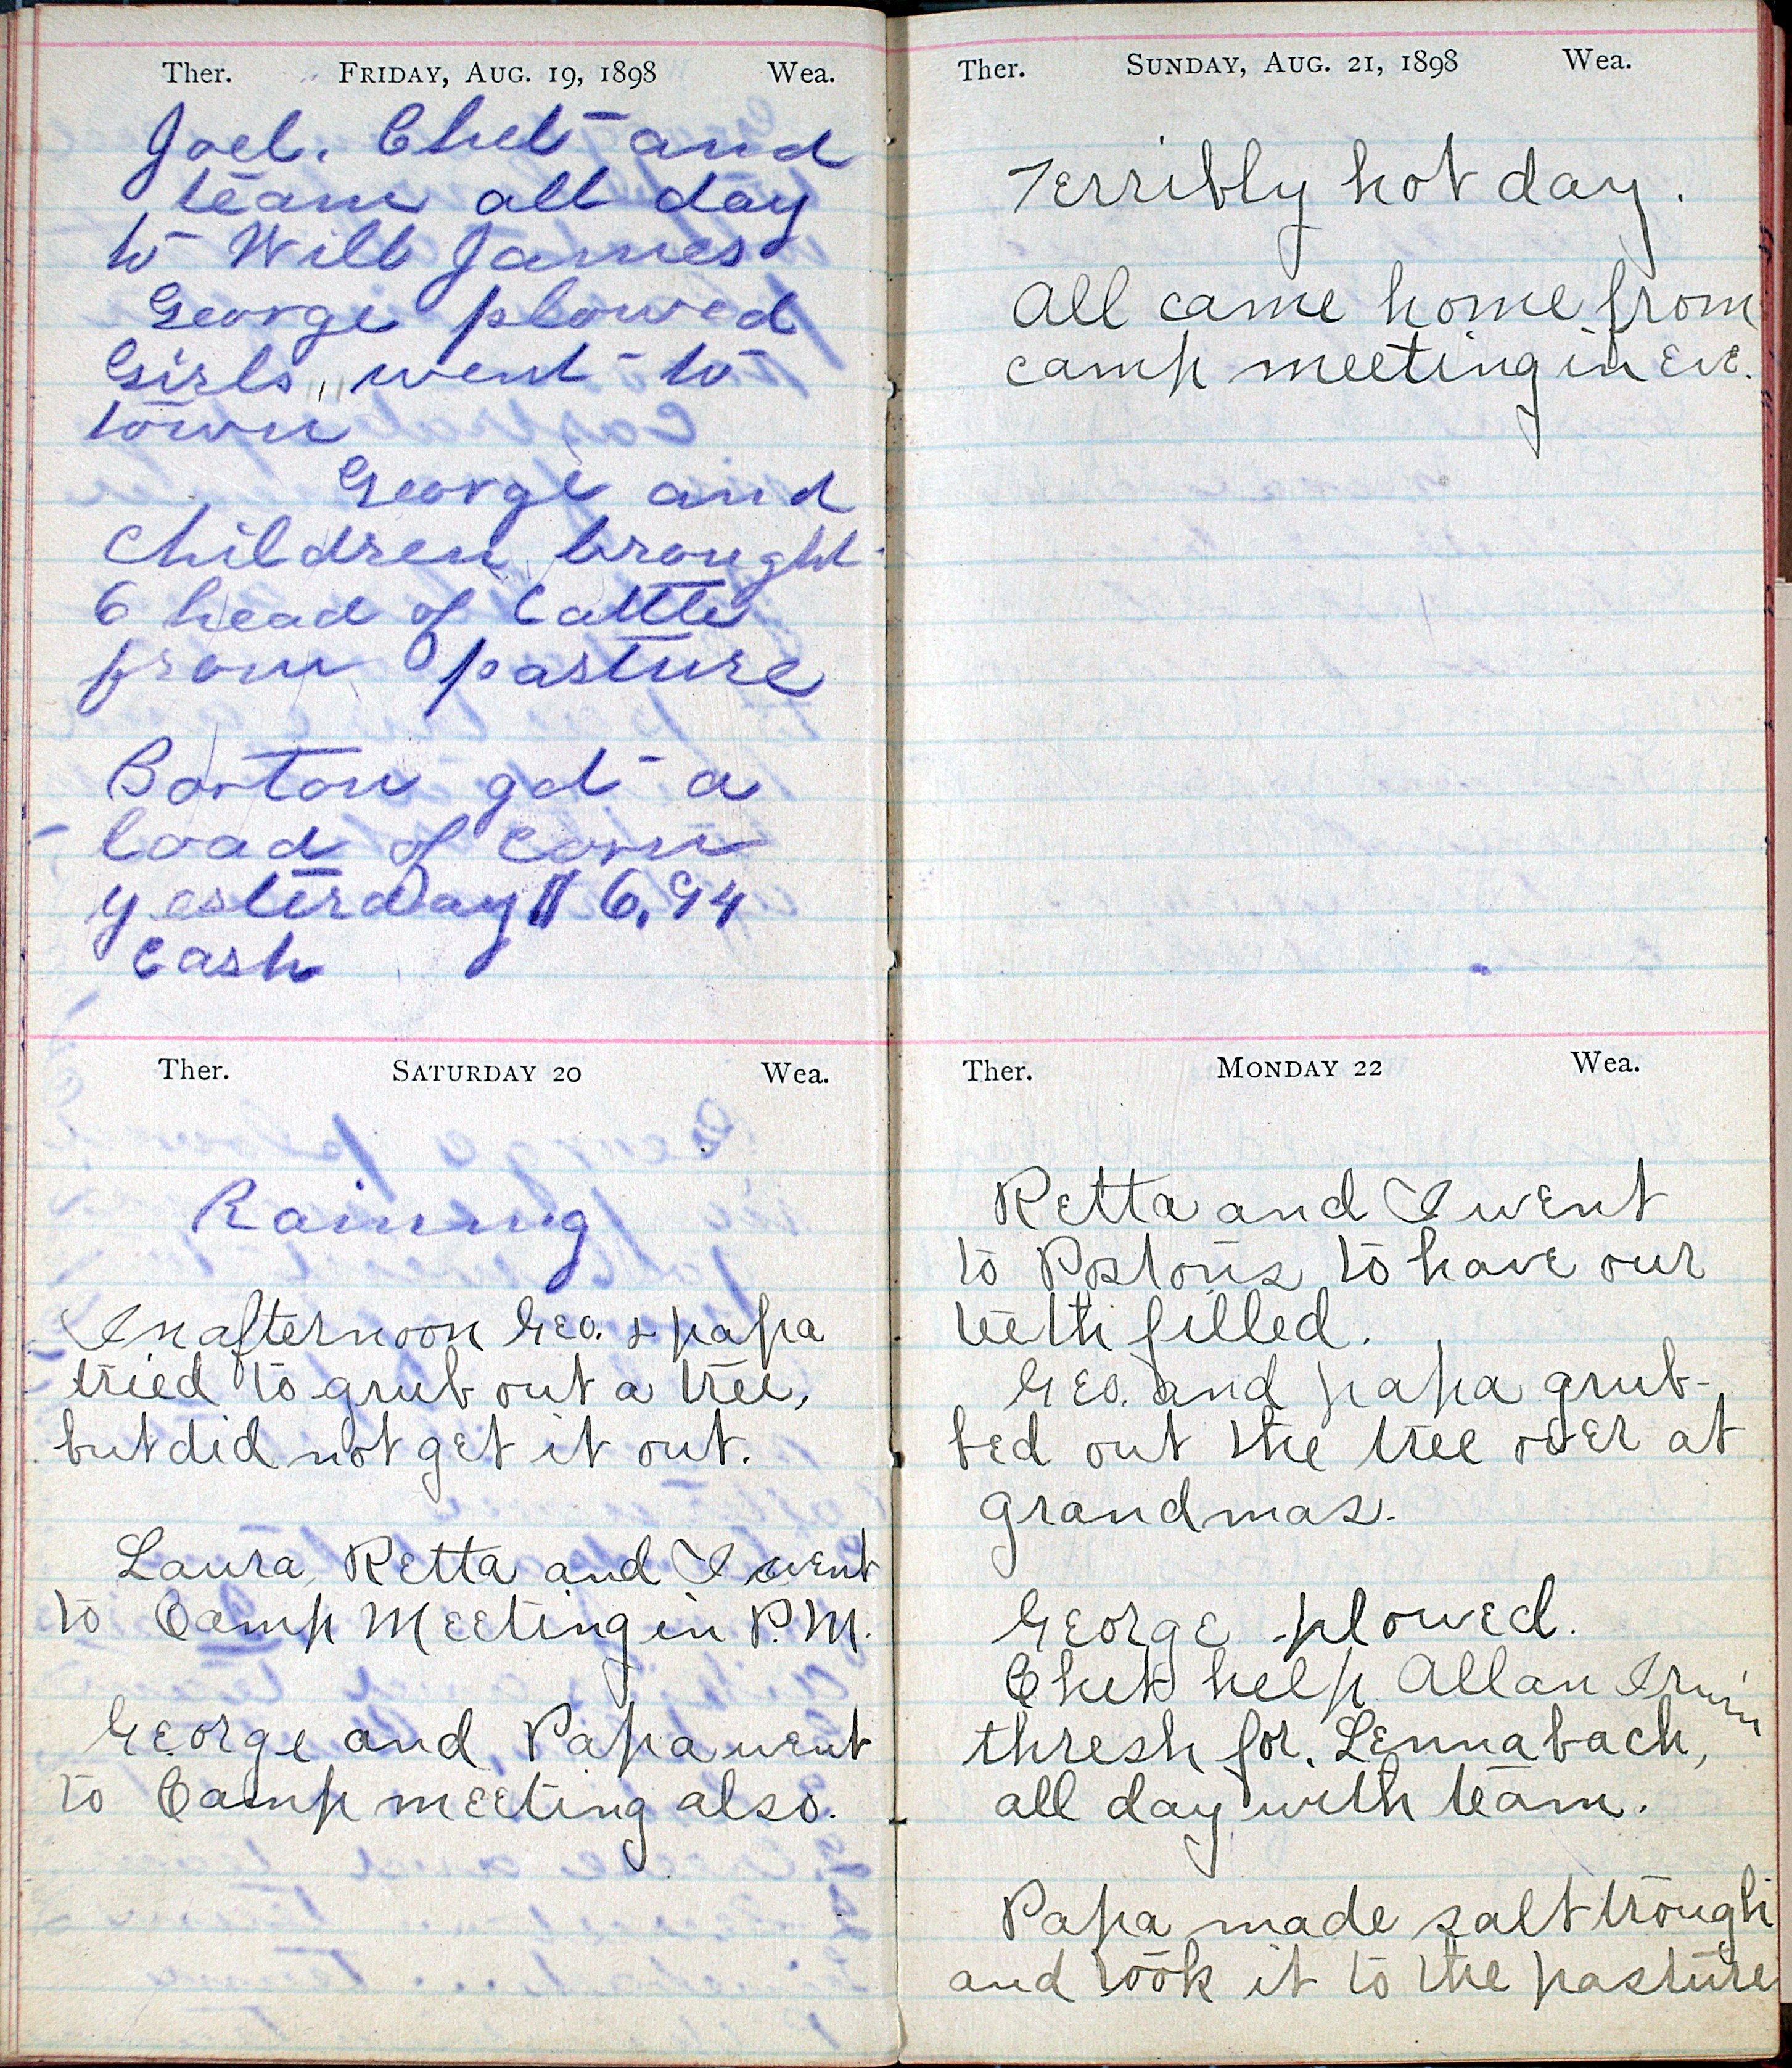 Ther. FRIDAY, AUG. 19, 1898 Wea.
Joel. Chet and
team all day
to Will James
George plowed
Girls went to
town
George and
Children brought
6 head of Cattle
from pasture
Barton got a
load of Corn
yesterday $ 6.94
Cash
Ther. SATURDAY 20 Wea.
Raining
In afternoon Geo. & papa
tried to grub out a tree,
but did not get it out.
Laura, Retta and I went
to Camp Meeting in P.M.
George and Papa went
to Camp meeting also.
Ther. SUNDAY, AUG. 21, 1898 Wea.
Terribly hot day.
All came home from
camp meeting in eve.
Ther. MONDAY 22 Wea.
Retta and I went
to Postons to have our
teeth filled.
Geo. and papa grub-
bed out the tree over at
grandmas.
George plowed.
Chet help Allan Irwin
thresh for. Lennabach,
all day with team.
Papa made salt trough
and took it to the pasture